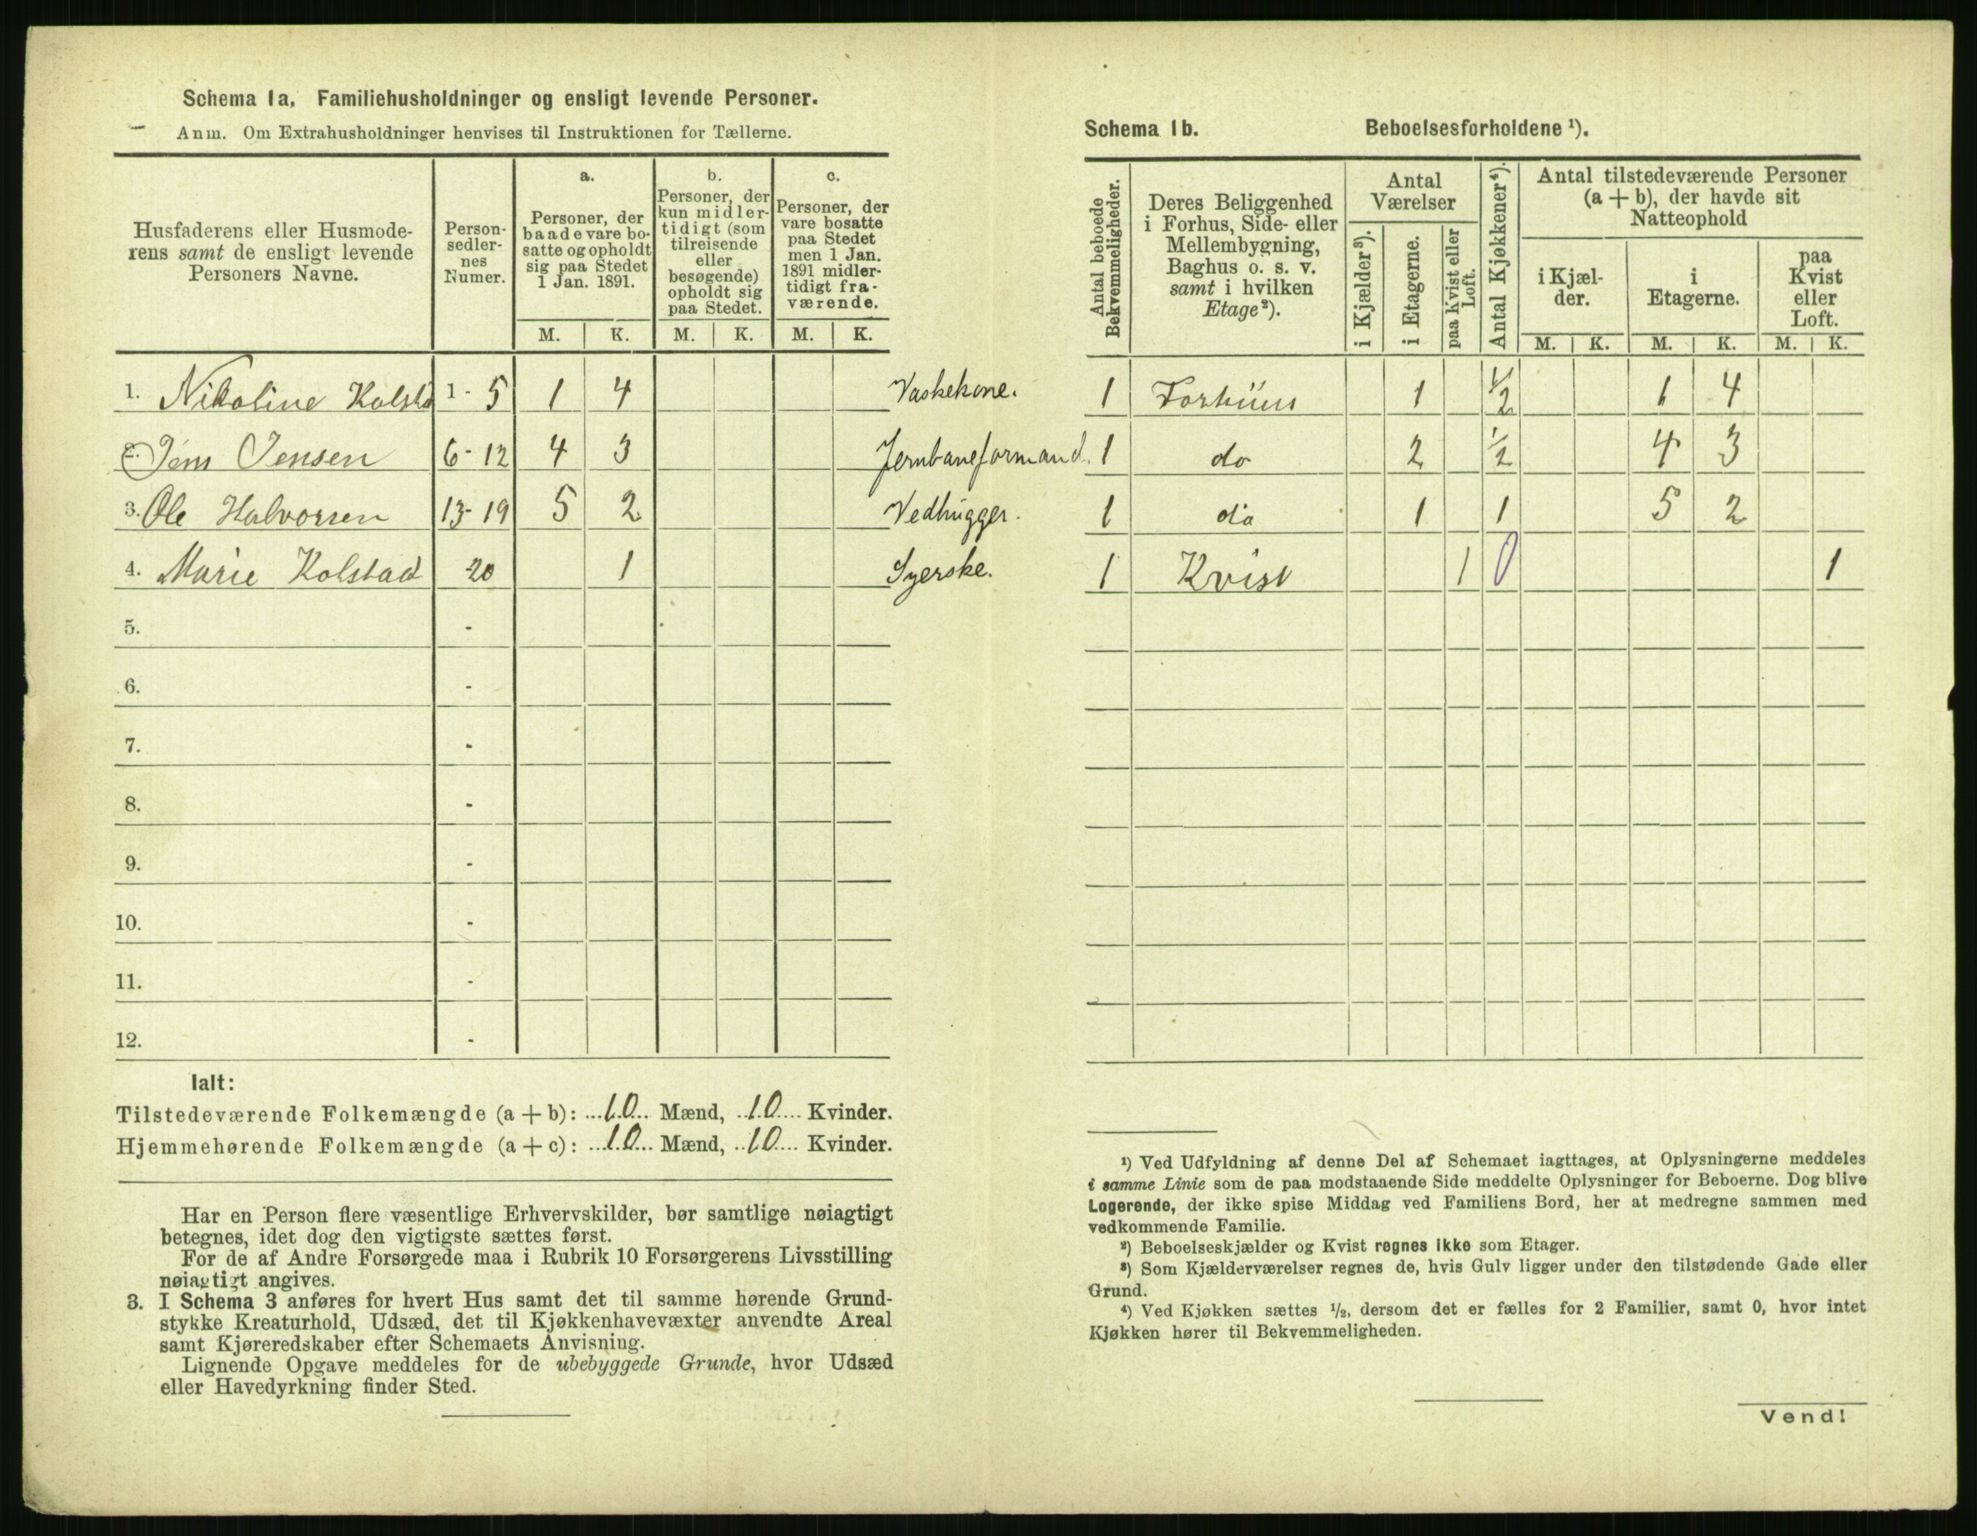 Schema Ia. Familiehusholdninger og ensligt levende Personer.
Anm. Om Extrahusholdninger henvises til Instruktionen for Tællerne.
Husfaderens eller Husmode-
rens samt de ensligt levende
Personers Navne.
Person-
sedler-
nes
Numer.
a.
Personer, der
baade vare bo-
satte og opholdt
sig paa Stedet
1 Jan. 1891.
b.
Personer, der
kun midler-
tidigt (som
tilreisende
eller
besøgende)
opholdt sig
paa Stedet.
c.
Personer, der
vare bosatte
paa Stedet
men 1 Jan.
1891 midler-
tidigt fra-
værende.
M. K. M. K. M. K.
1. Nikoline Kolstd 1 - 5 1 4 Vaskekone.
2. Jens Jensen 6 - 12 4 3 Jernbaneformand.
3. Ole Halvorsen 13 - 19 5 2 Vedhugger.
4. Marie Kolstad 20 1 Syerske.
5. -
6. -
7. -
8. -
9. -
10. -
11. -
12. -
Ialt:
Tilstedeværende Folkemængde (a + b): ...10... Mænd, ..10.... Kvinder.
Hjemmehørende Folkemængde (a + c): ...10... Mænd, ..10.... Kvinder.
Har en Person flere væsentlige Erhvervskilder, bør samtlige nøiagtigt
betegnes, idet dog den vigtigste sættes først.
For de af Andre Forsørgede maa i Rubrik 10 Forsørgerens Livsstilling
nøiagtigt angives.
3. I Schema 3 anføres for hvert Hus samt det til samme hørende Grund-
stykke Kreaturhold, Udsæd, det til Kjøkkenhavevæxter anvendte Areal
samt Kjøreredskaber efter Schemaets Anvisning.
Lignende Opgave meddeles for de ubebyggede Grunde, hvor Udsæd
eller Havedyrkning finder Sted.
Schema Ib. Beboelsesforholdene ¹).
Antal beboede
Bekvemmeligheder.
Deres Beliggenhed
i Forhus, Side- eller
Mellembygning,
Baghus o. s. v.
samt i hvilken
Etage²).
Antal
Værelser
i Kjælder³).
i Etagerne.
paa Kvist eller
Loft.
Antal Kjøkkener⁴).
Antal tilstedeværende Personer
(a + b), der havde sit
Natteophold
i Kjæl-
der.
i
Etagerne.
paa
Kvist
eller
Loft.
M. K. M. K. M. K.
1 Forhuus 1 1/2 1 4
1 do 2 1/2 4 3
1 do 1 1 5 2
1 Kvist 1 0 1
¹) Ved Udfyldning af denne Del af Schemaet iagttages, at Oplysningerne meddeles
i samme Linie som de paa modstaaende Side meddelte Oplysninger for Beboerne. Dog blive
Logerende, der ikke spise Middag ved Familiens Bord, her at medregne sammen med
vedkommende Familie.
²) Beboelseskjælder og Kvist regnes ikke som Etager.
³) Som Kjælderværelser regnes de, hvis Gulv ligger under den tilstødende Gade eller
Grund.
⁴) Ved Kjøkken sættes ½, dersom det er fælles for 2 Familier, samt 0, hvor intet
Kjøkken hører til Bekvemmeligheden.
Vend!